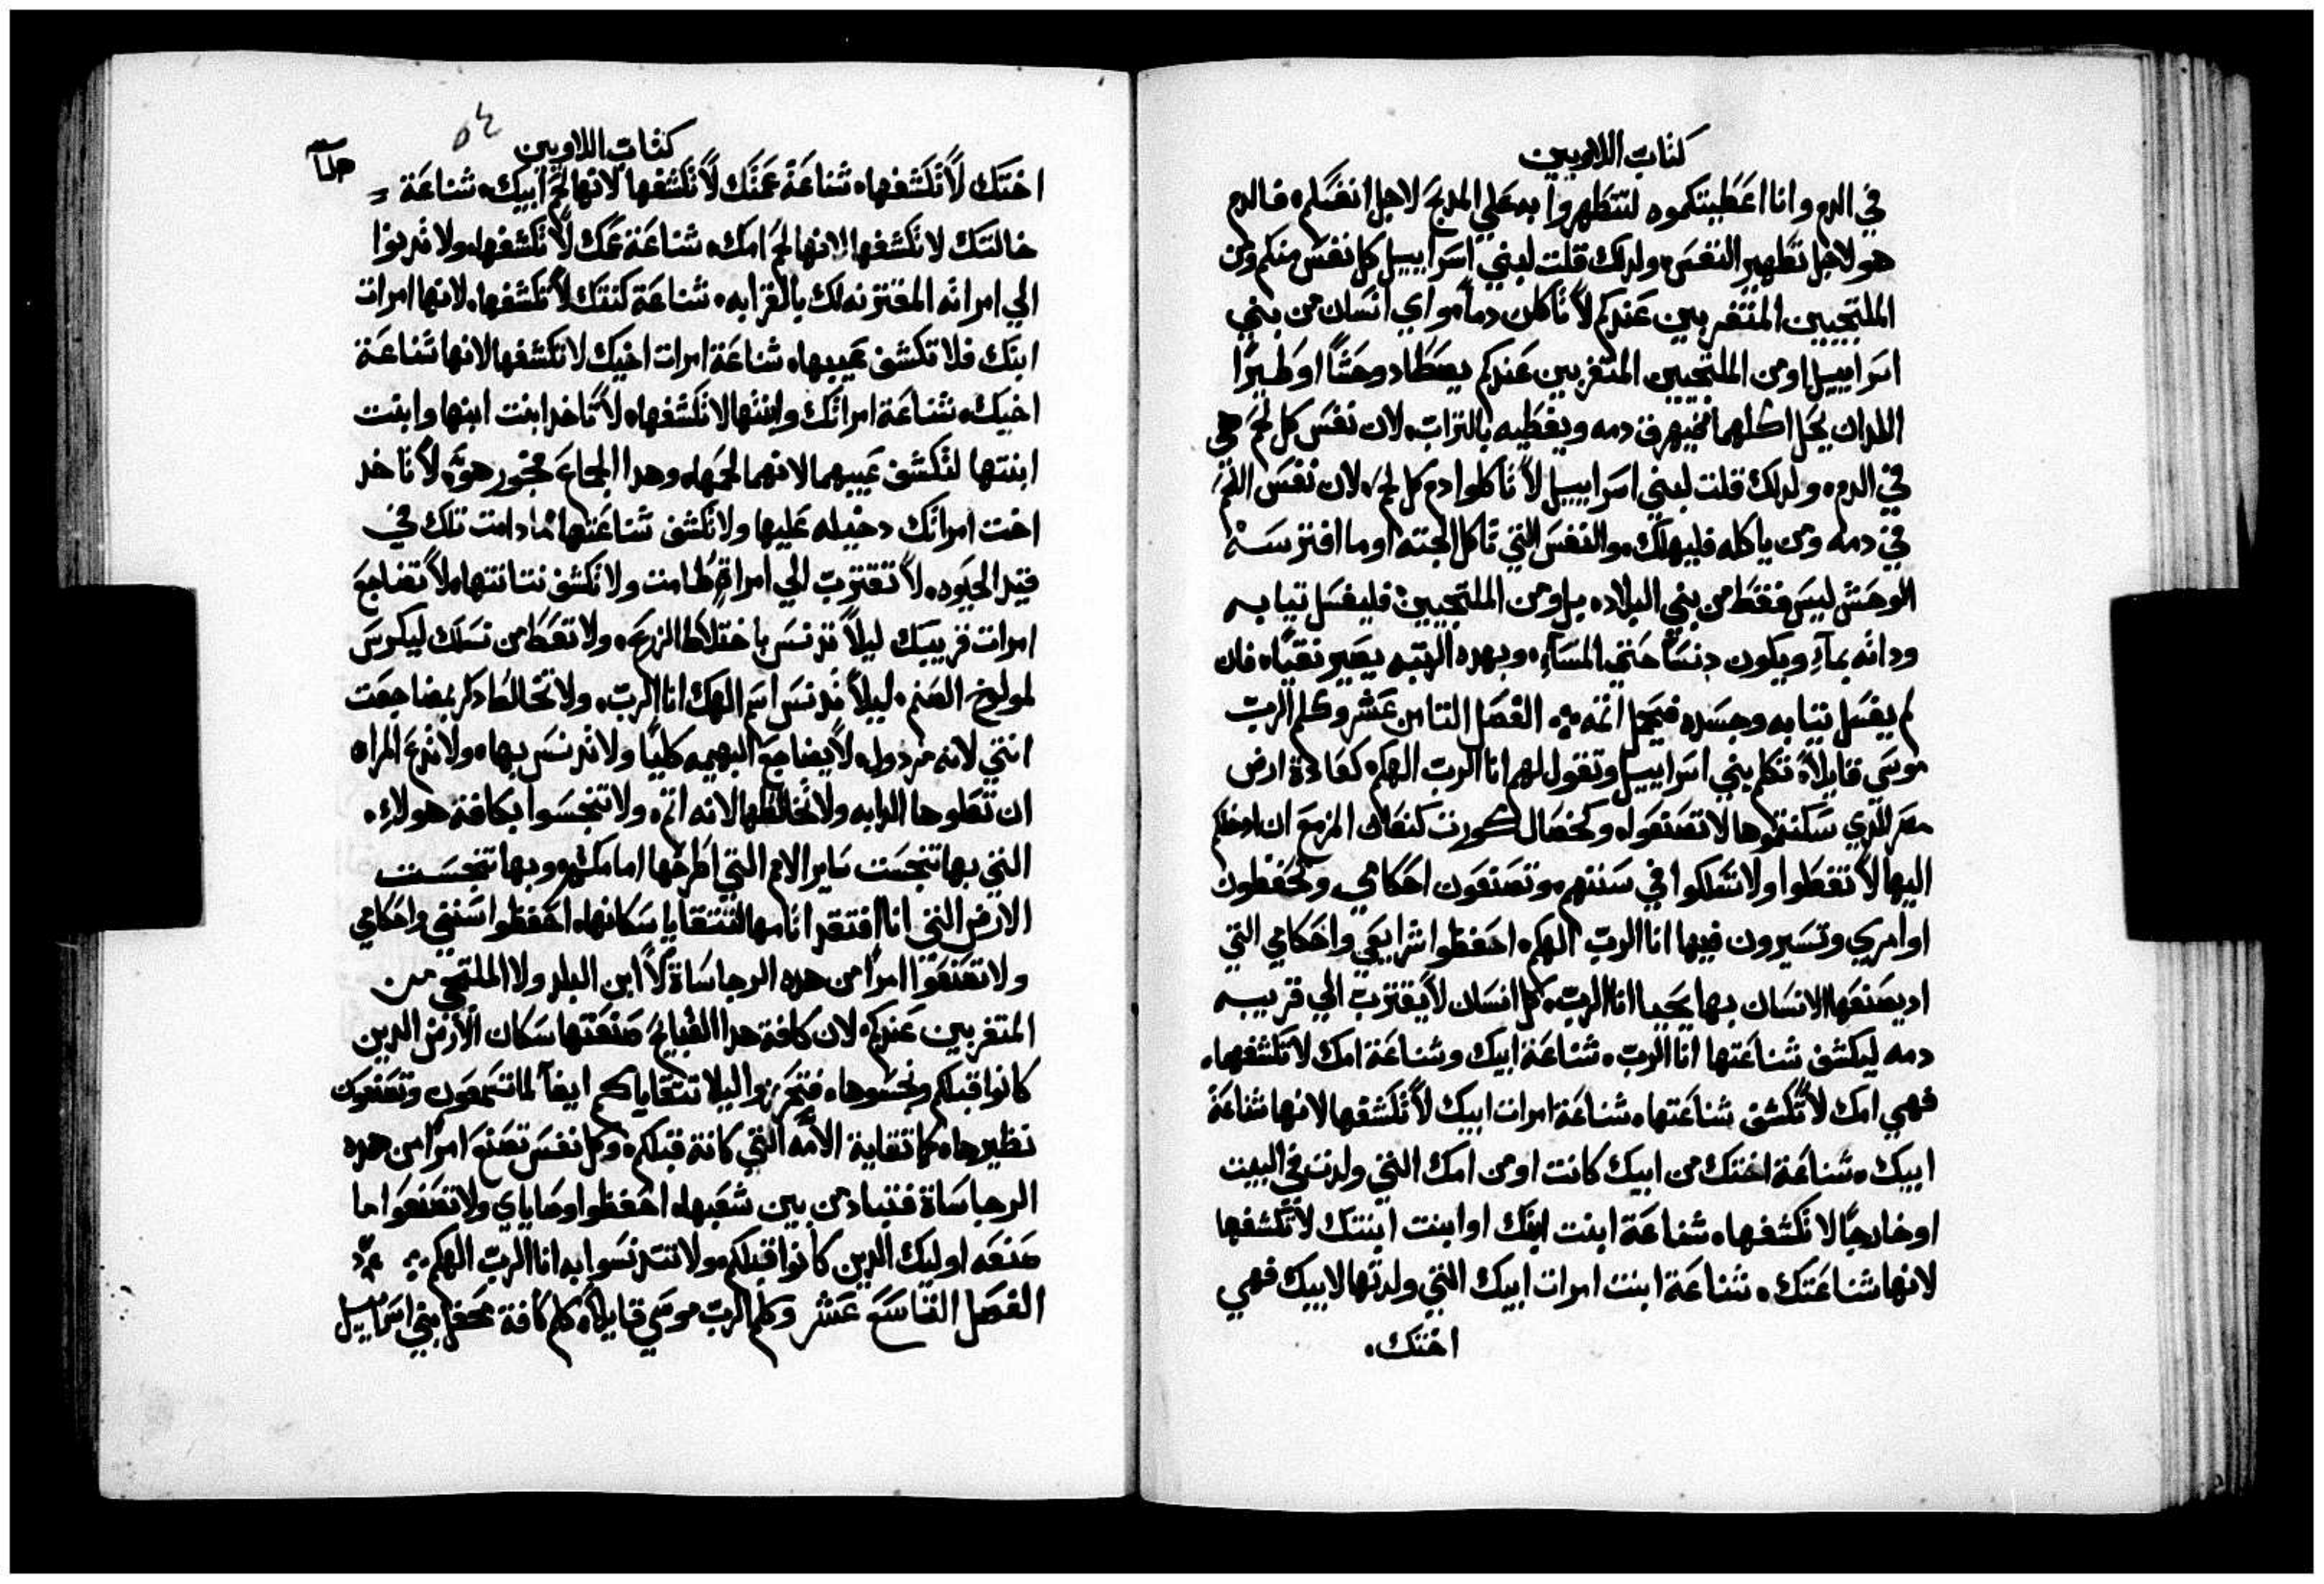 كتاب اللاويين
في الدم وانا اعطيتكموه لتتطهروا به علي المدبح لاجل انفسكم، فالدم
هو لاجل تطهير النفس، ولدلك قلت لبني اسراييل كل نفس منكم ومن
الملتجيين المتغربين عندكم لا تاكلن دماً، واي انسان من بني
اسراييل او من الملتجيين المتغربين عندكم يصطاد وحشاً او طيراً
اللدان يحل اكلهما فيهرق دمه ويغطيه بالتراب، لان نفس كل لحم هي
في الدم، ولدلك قلت لبني اسراييل لا تاكلوا دم كل لحم، لان نفس اللحم
في دمه ومن ياكله فليهلك، والنفس التي تاكل الجتة او ما افترسه
الوحش ليس فقط من بني البلاد، بل ومن الملتجيين فليغسل تيابه
وداته بمآء ويكون دنساً حتي المسآء، وبهده الرتبه يصير نقياً، فان
لم يغسل تيابه وجسده فيحمل اتمه ؞ الفصل التامن عشر وكلم الرب
موسي قايلاً، تكلم بني اسراييل وتقول لهم انا الرب الهكم، كعادة ارض
مصر الدي سكنتموها لا تصنعوا، وكخصال كورت كنعان المزمع ان ادخلكم
اليها لا تفعلوا ولا تسلكوا في سننهم، وتصنعون احكامي، وتحفظون
اوامري وتسيرون فيها انا الرب الهكم، احفظوا شرايعي واحكامي التي
اد يصنعها الانسان بها يحيا انا الرب، كل انسان لا يقترب الي قريبه
دمه ليكشف شناعتها انا الرب، شناعة ابيك وشناعة امك لا تكشفها،
فهي امك لا تكشف شناعتها، شناعة امرات ابيك لا تكشفها لانها شناعة
ابيك، شناعة اختك من ابيك كانت او من امك التي ولدت في البيت
او خارجاً لا تكشفها، شناعة ابنت ابنك او ابنت ابنتك لا تكشفها
لانها شناعتك، شناعة ابنت امرات ابيك التي ولدتها لابيك فهي
اختك،
٥٤
كتاب اللاويين
اختك لا تكشفها، شناعة عمتك لا تكشفها لانها لحم ابيك، شناعة
خالتك لا تكشفها لانها لحم امك، شناعة عمك لا تكشفها، ولا تدنوا
الي امراته المقترنه لك بالقرابه، شناعة كنتك لا تكشفها، لانها امرات
ابنك فلا تكشف عيبها، شناعة امرات اخيك لا تكشفها لانها شناعة
اخيك، شناعة امراتك وابنتها لا تكشفها، لا تاخد ابنت ابنها وابنت
ابنتها لتكشف عيبهما لانهما لحمها، وهدا الجماع فجور هو، لا تاخد
اخت امراتك دخيله عليها ولا تكشف شناعتها ما دامت تلك في
قيد الحيوه، لا تقترب الي امراة طامت ولا تكشف نتانتها، لا تضاجع
امرات قريبك ليلا تدنس باختلاط الزرع، ولا تعط من نسلك ليكرس
لمولوخ الصنم، ليلا تدنس اسم الهك انا الرب، ولا تخالط دكر بمضاجعت
انتي لانه مردول، لا يضاجع البهيمه كلياً ولا تدنس بها، ولا تدع المراه
ان تعلوها الدابه ولا تخالطها لانه اتم، ولا تنجسوا بكافة هولاء،
التي بها تنجست ساير الامم التي اطرحها امامكم، وبها تنجست
الارض التي انا افتقد اتامها لتتقايا سكانها، احفظوا سنني واحكامي
ولا تصنعوا امراً من هده الرجاساة لا ابن البلد ولا الملتجي من
المتغربين عندكم، لان كافة هدا القبايح صنعتها سكان الارض الدين
كانوا قبلكم ونجسوها، فتحرزوا ليلا تتقاياكم ايضاً لما تسمعون وتصنعون
نظيرها، كما تقاية الامه التي كانة قبلكم، وكل نفس تصنع امراً من هده
الرجاساة فتباد من بين شعبها، احفظوا وصاياي ولا تصنعوا ما
صنعه اوليك الدين كانوا قبلكم، ولا تتدنسوا به انا الرب الهكم ؞
الفصل التاسع عشر وكلم الرب موسي قايلاً، كلم كافة محفل بني اسراييل